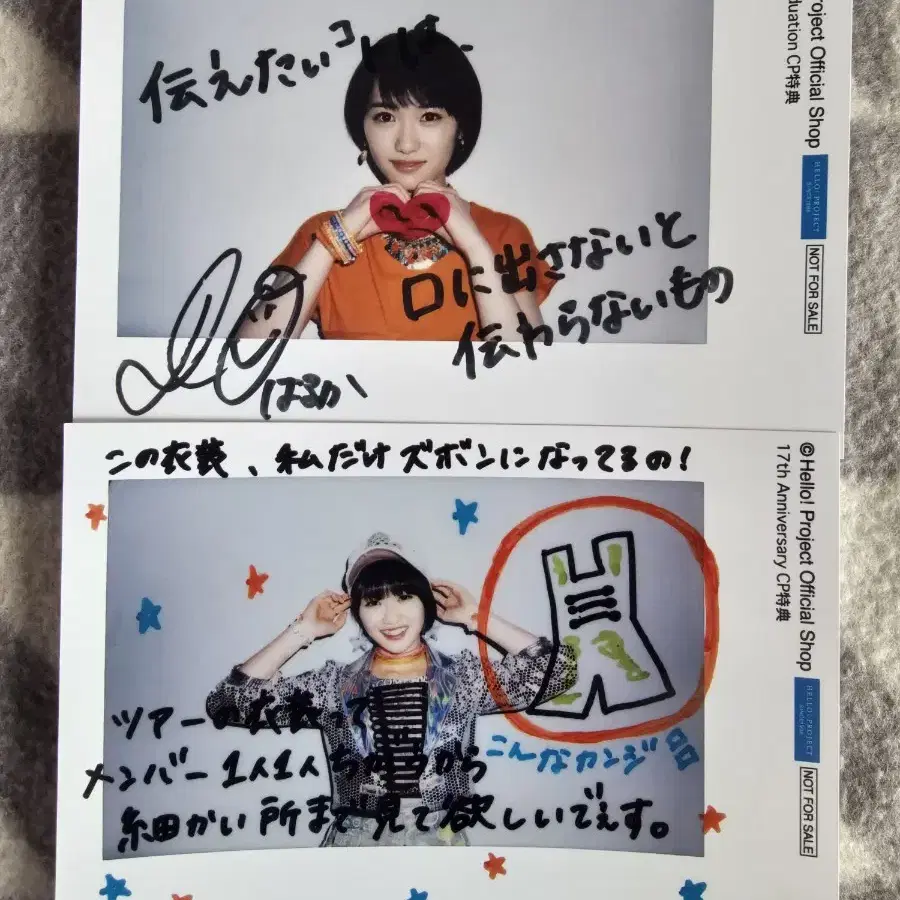 伝えたいコトは、
口に出さないと
伝わらないもの
はるか
roject Official Shop
duation CP特典
HELLO! PROJECT
NOT FOR SALE
この衣装、私だけズボンになってるの!
ツアーの衣装って
メンバー1人1人ちがうから
こんなカンジ
細かい所まで見て欲しいでぇす。
©Hello! Project Official Shop
17th Anniversary CP特典
HELLO! PROJECT
NOT FOR SALE